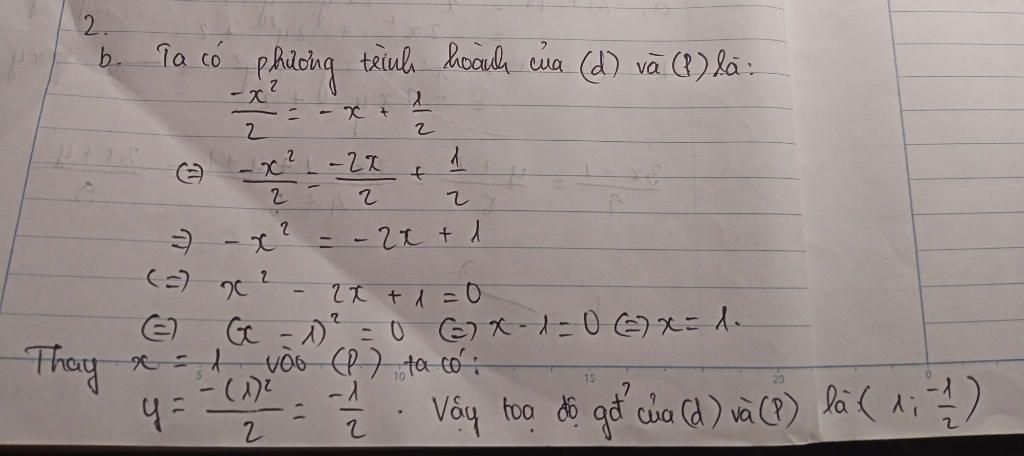 2.
b. Ta có phương trình hoành của (d) và (P) là:
-x²/2 = -x + 1/2
(=) -x²/2 = -2x/2 + 1/2
=) -x² = -2x + 1
(=) x² - 2x + 1 = 0
(=) (x - 1)² = 0 (=) x - 1 = 0 (=) x = 1.
Thay x = 1 vào (P) ta có:
5 10 15 20 0
y = -(1)²/2 = -1/2 . Vậy toạ độ gđ² của (d) và (P) là ( 1; -1/2 )